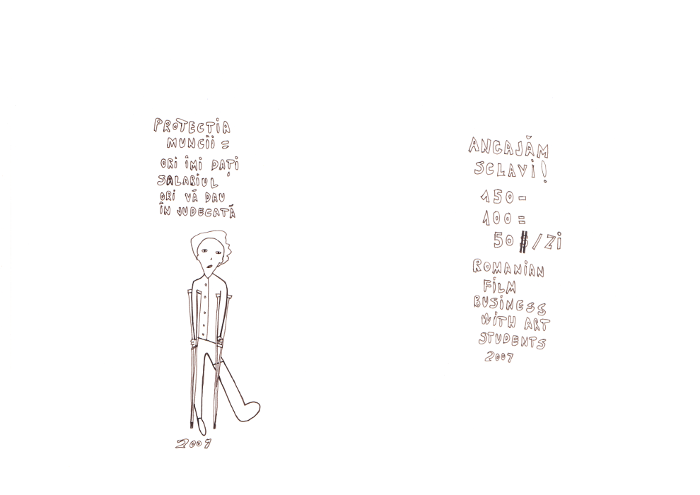 PROTECTIA
MUNCII =
ORI ÎMI DAȚI
SALARIUL
ORI VĂ DAU
ÎN JUDECATĂ
2007
ANGAJĂM
SCLAVI!
150-
100=
50 $/ZI
ROMANIAN
FILM
BUSINESS
WITH ART
STUDENTS
2007